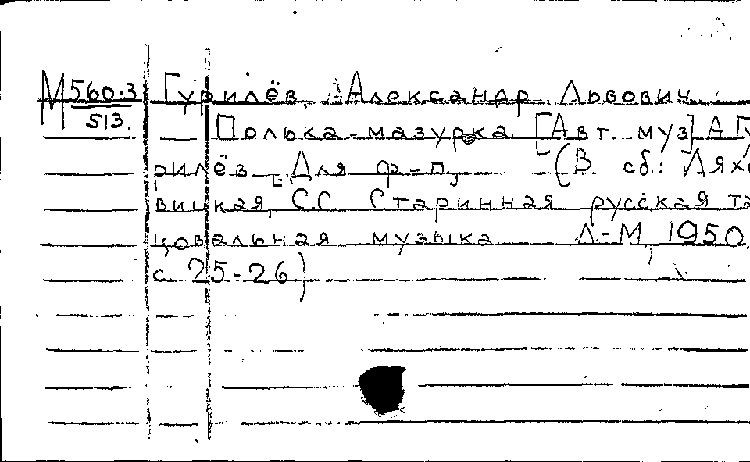 М 560.3 Гурилёв, Александр Львович.
513. Полька-мазурка [Авт. муз] А Гу
рилёв. Для ф-п, (В сб: Ляхо
вицкая, С С Старинная русская та
цовальная музыка Л-М, 1950,
с 25-26)